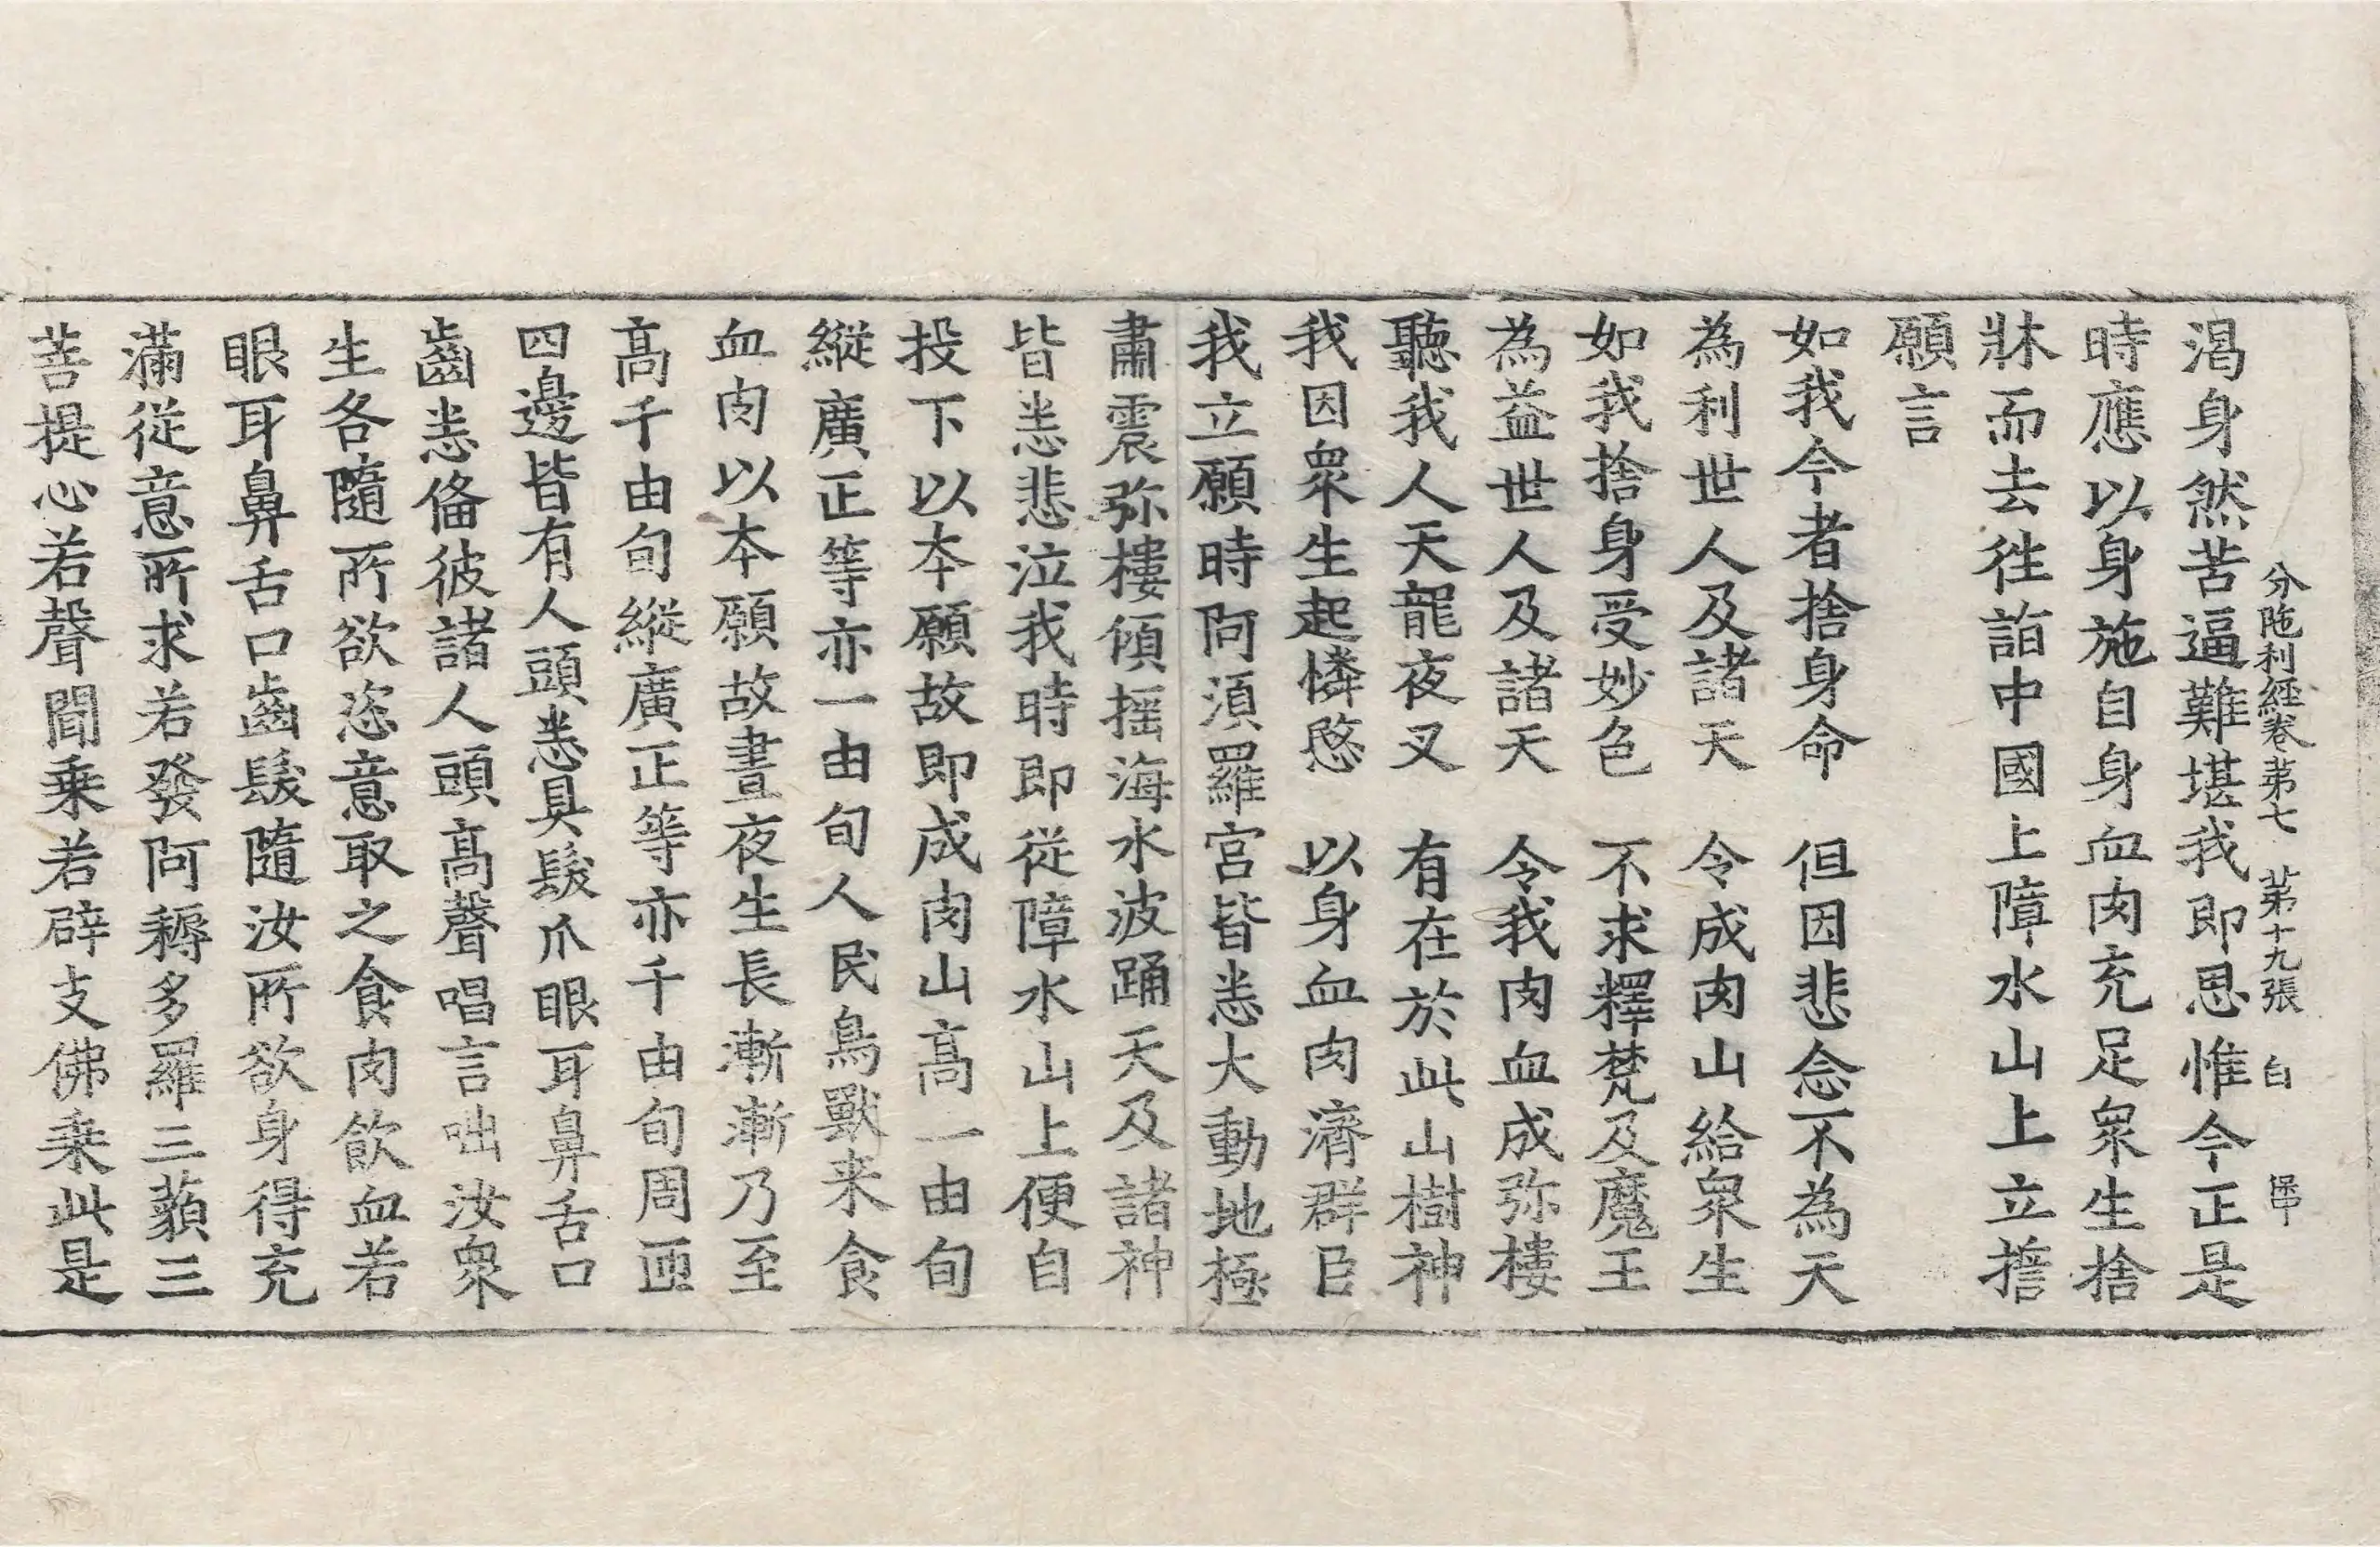 分陁利經卷第七 第十九張 白
渴身然苦逼難堪我即思惟今正是
時應以身施自身血肉充足衆生捨
牀而去往詣中國上障水山上立擔
願言
如我今者捨身命 但因悲念不為天
為利世人及諸天 令成肉山給衆生
如我捨身受妙色 不求釋梵及魔王
為益世人及諸天 令我肉血成弥樓
聽我人天龍夜叉 有在於此山樹神
我因衆生起憐愍 以身血肉濟群臣
我立願時阿須羅宮皆悉大動地極
肅震弥樓傾摇海水波踊天及諸神
皆悉悲泣我時即從障水山上便自
投下以本願故即成肉山高一由旬
縱廣正等亦一由旬人民鳥獸来食
血肉以本願故晝夜生長漸漸乃至
高千由旬縱廣正等亦千由旬周匝
四邊皆有人頭悉具髮爪眼耳鼻舌口
齒悉俻彼諸人頭高聲唱言咄汝衆
生各隨所欲恣意取之食肉飲血若
眼耳鼻舌口齒髮隨汝所欲身得充
滿從意所求若發阿耨多羅三藐三
菩提心若聲聞乘若辟支佛乘此是